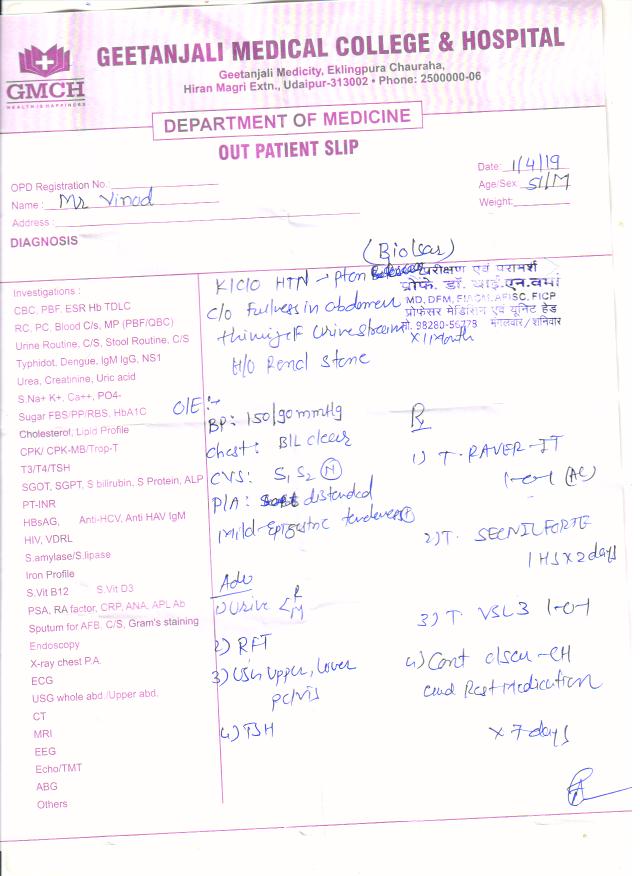 GMCH
HEALTH IS HAPPINESS
GEETANJALI MEDICAL COLLEGE & HOSPITAL
Geetanjali Medicity, Eklingpura Chauraha,
Hiran Magri Extn., Udaipur-313002 • Phone: 2500000-06
DEPARTMENT OF MEDICINE
OUT PATIENT SLIP
OPD Registration No.:
Date: 1/4/19
Name: Mr Vinod
Age/Sex 51/M
Address:
Weight:
DIAGNOSIS
परीक्षण एवं परामर्श
प्रोफे. डॉ. वाई.एन.वर्मा
FICP
प्रोफेसर मेडिसिन एवं यूनिट हेड
मंगलवार/शनिवार
K/C/O HTN
C/O Fullness in abdomen
Urine stream
x 1 month
H/O Renal stone
O/E :-
BP: 150/90 mmHg
Chest: B/L clear
CVS: S1 S2 (N)
P/A: distended
mild epigastric tenderness
Adv
1) Urine R/M
2) RFT
3) USG upper, lower
pelvis
4) TSH
Rx
1) T. RAVER-IT
1-0-1 (AC)
2) T. SECNIL FORTE
1 HS x 2 days
3) T. VSL3 1-0-1
4) Cont
and Rest Medication
x 7 days
Investigations :
CBC, PBF, ESR Hb TDLC
RC, PC, Blood C/s, MP (PBF/QBC)
Urine Routine, C/S, Stool Routine, C/S
Typhidot, Dengue IgM IgG, NS1
Urea, Creatinine, Uric acid
S.Na+ K+, Ca++, PO4-
Sugar FBS/PP/RBS, HbA1C
Cholesterol, Lipid Profile
CPK/ CPK-MB/Trop-T
T3/T4/TSH
SGOT, SGPT, S bilirubin, S Protein, ALP
PT-INR
HBsAG, Anti-HCV, Anti HAV IgM
HIV, VDRL
S.amylase/S.lipase
Iron Profile
S.Vit B12 S.Vit D3
PSA, RA factor, CRP, ANA, APL Ab
Sputum for AFB, C/S, Gram's staining
Endoscopy
X-ray chest P.A.
ECG
USG whole abd./Upper abd.
CT
MRI
EEG
Echo/TMT
ABG
Others